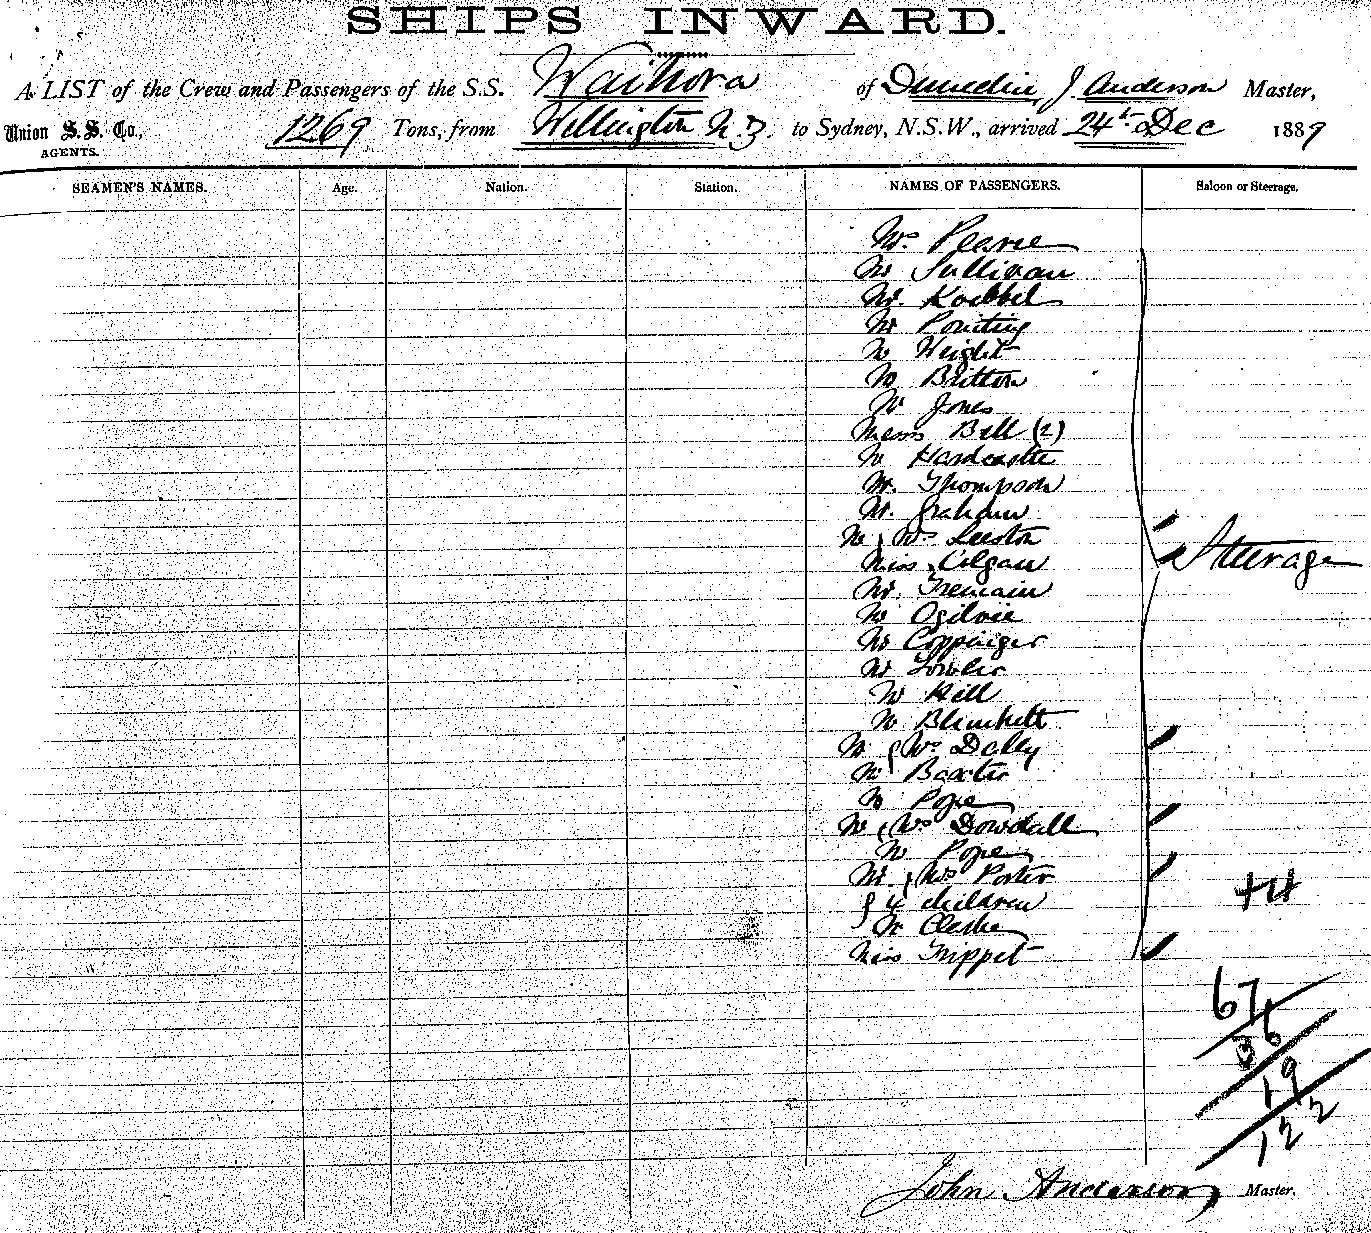 SHIPS INWARD.
A LIST of the Crew and Passengers of the S.S. Waihora of Dunedin, J. Anderson Master,
Union S.S. Co., 1269 Tons, from Wellington N.Z. to Sydney, N.S.W., arrived 24th Dec 1889
AGENTS.
SEAMEN'S NAMES. Age. Nation. Station. NAMES OF PASSENGERS. Saloon or Steerage.
Pearce
Mr Sullivan
Mr. Koebbel
Mr Pointing
Mr Wright
Mr Britton
Mr Jones
Messrs Bell (2)
Mr Hardcastle
Mr. Thompson
Mr. Graham
Mr & Mrs Leeston
Miss Cilgan Steerage
Mr. Tremain
Mr Ogilvie
Mr Coppinger
Mr Fowler
Mr Hill
Mr Blunkett
Mr & Mrs Dalley
Mr Baxter
Mr Pope
Mr & Mrs Dowdall
Mr Pope
Mr. & Mrs Porter
& 4 children
Mr Clarke
Miss Trippet
67
36
19
122
John Anderson Master.